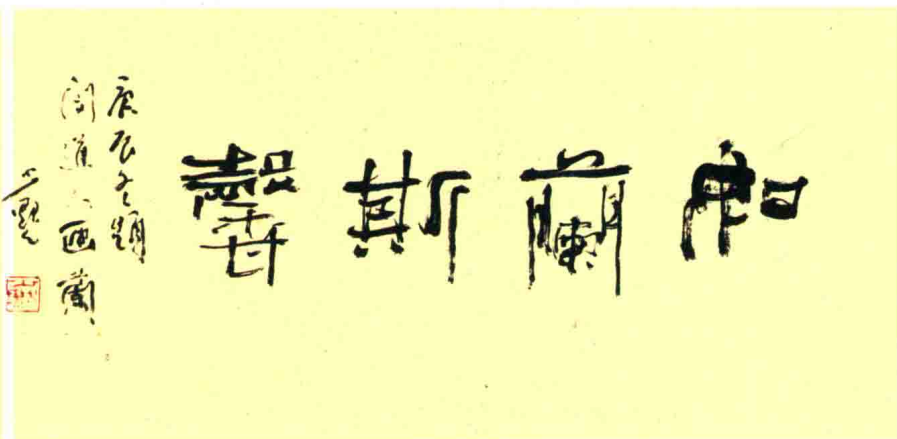 如蘭斯馨
庚辰冬題
道人画蘭